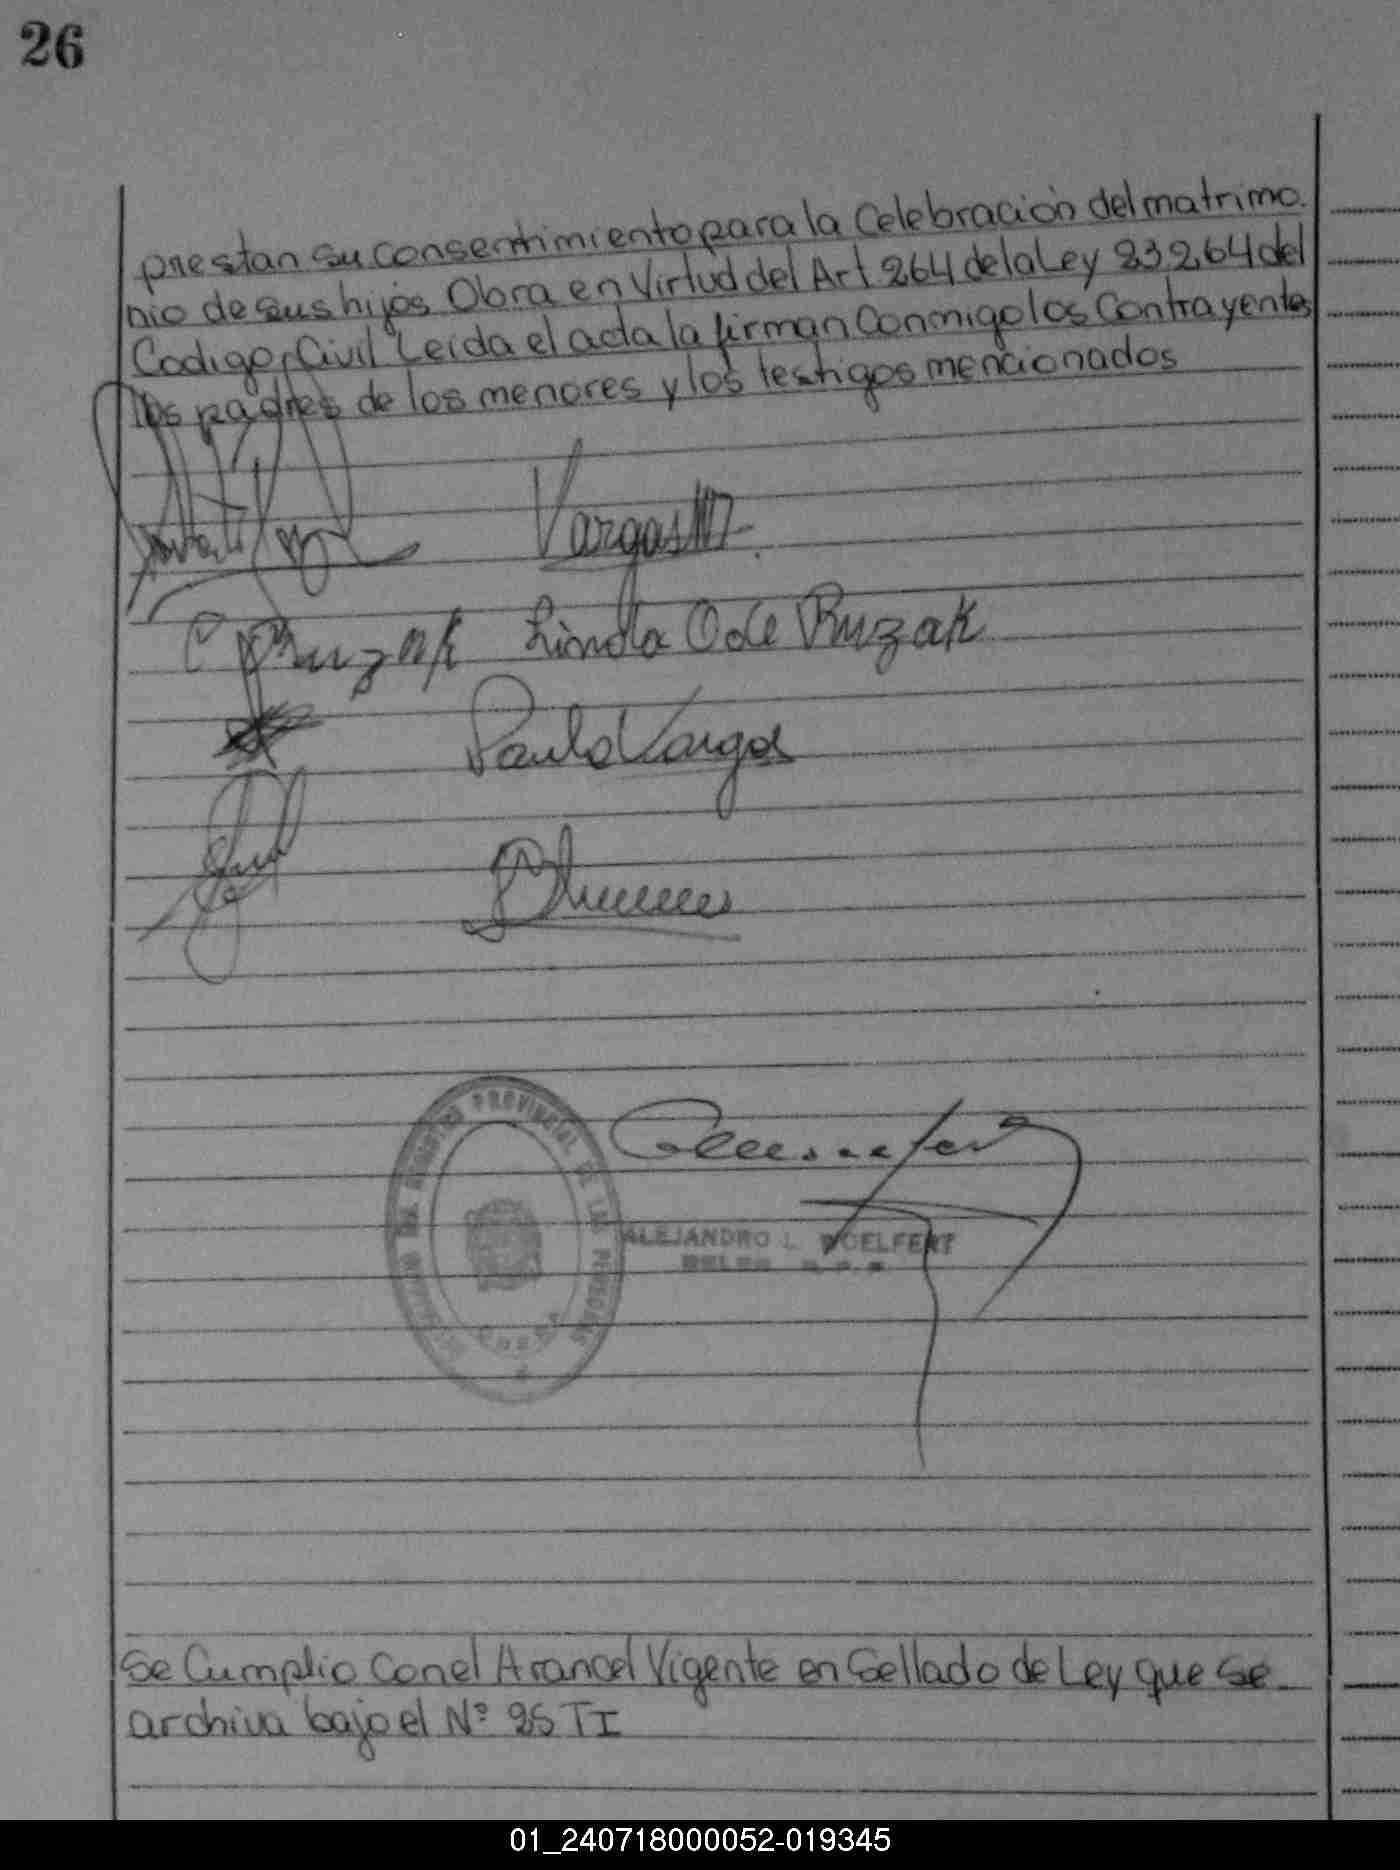 26
prestan su consentimiento para la Celebración del matrimo.
nio de sus hijos Obra en Virtud del Art 264 de la Ley 23264 del
Codigo Civil Leida el acta la firman Conmigo los Contrayentes
los padres de los menores y los testigos mencionados
Vargas
Ruzak Linda O de Ruzak
Paulo Vargas
PROVINCIAL DE LAS PERSONAS
ALEJANDRO L. WOELFERT
Se Cumplio con el Arancel Vigente en Sellado de Ley que se
archiva bajo el Nº 25 TI
01_240718000052-019345